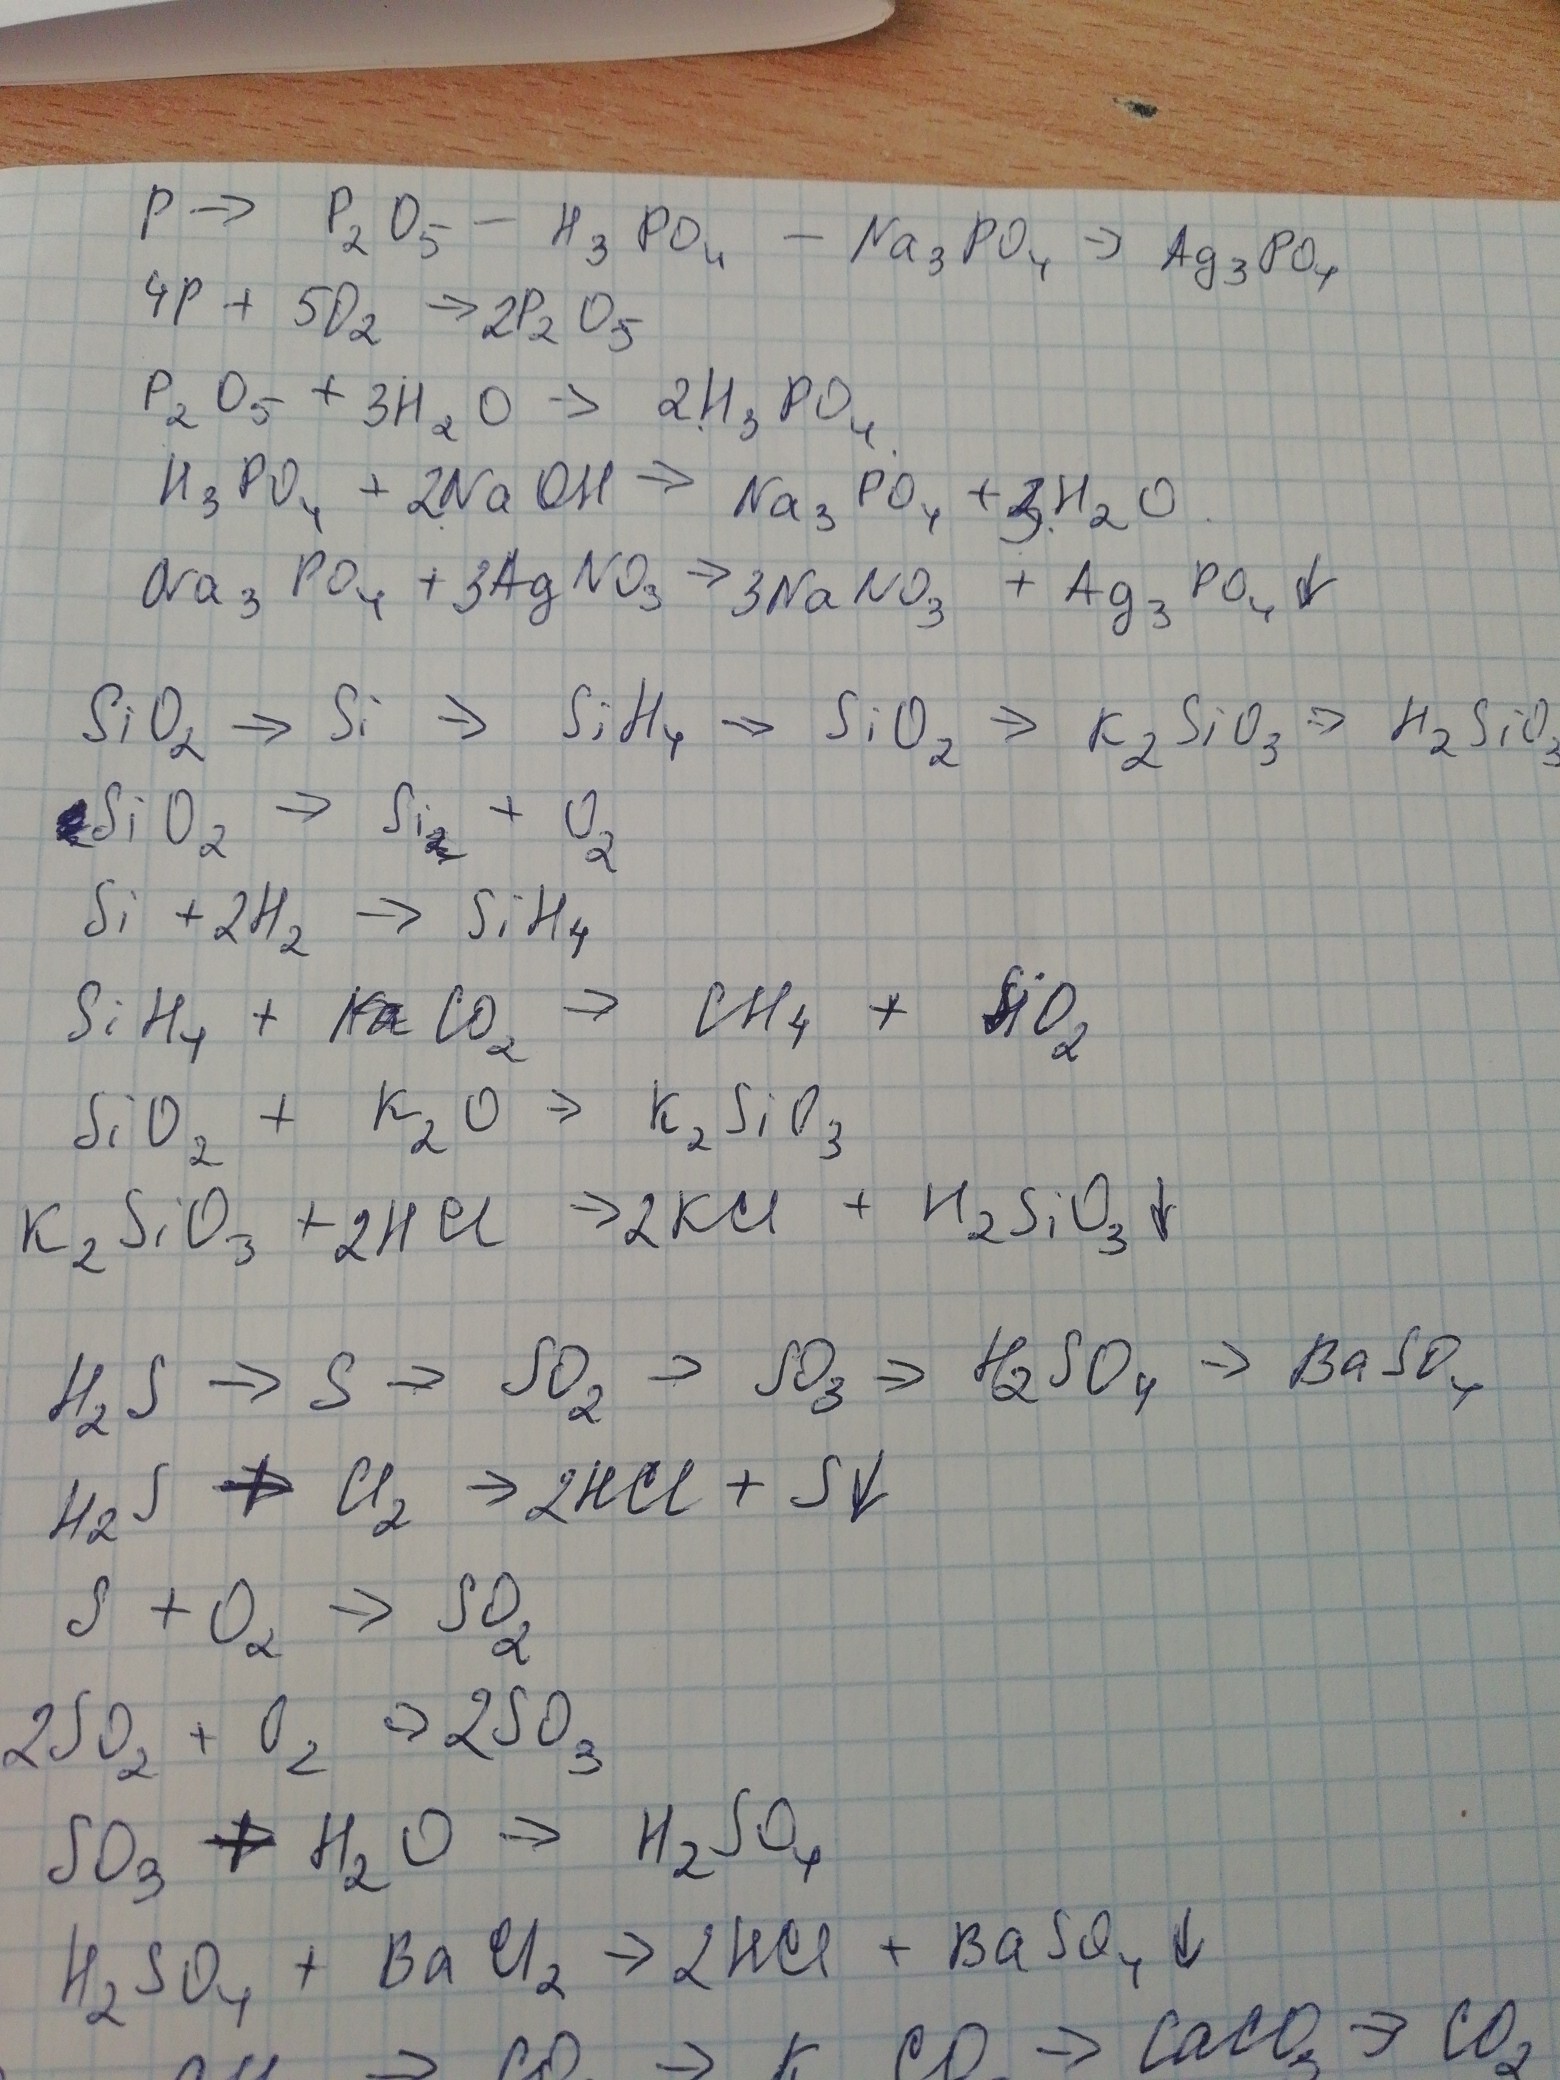 P → P₂O₅ – H₃PO₄ – Na₃PO₄ → Ag₃PO₄
4P + 5O₂ → 2P₂O₅
P₂O₅ + 3H₂O → 2H₃PO₄
H₃PO₄ + 2NaOH → Na₃PO₄ + 3H₂O
Na₃PO₄ + 3AgNO₃ → 3NaNO₃ + Ag₃PO₄↓
SiO₂ → Si → SiH₄ → SiO₂ → K₂SiO₃ → H₂SiO₃
SiO₂ → Si + O₂
Si + 2H₂ → SiH₄
SiH₄ + CO₂ → CH₄ + SiO₂
SiO₂ + K₂O → K₂SiO₃
K₂SiO₃ + 2HCl → 2KCl + H₂SiO₃↓
H₂S → S → SO₂ → SO₃ → H₂SO₄ → BaSO₄
H₂S + Cl₂ → 2HCl + S↓
S + O₂ → SO₂
2SO₂ + O₂ → 2SO₃
SO₃ + H₂O → H₂SO₄
H₂SO₄ + BaCl₂ → 2HCl + BaSO₄↓
→ CO → K CO → CaCO₃ → CO₂